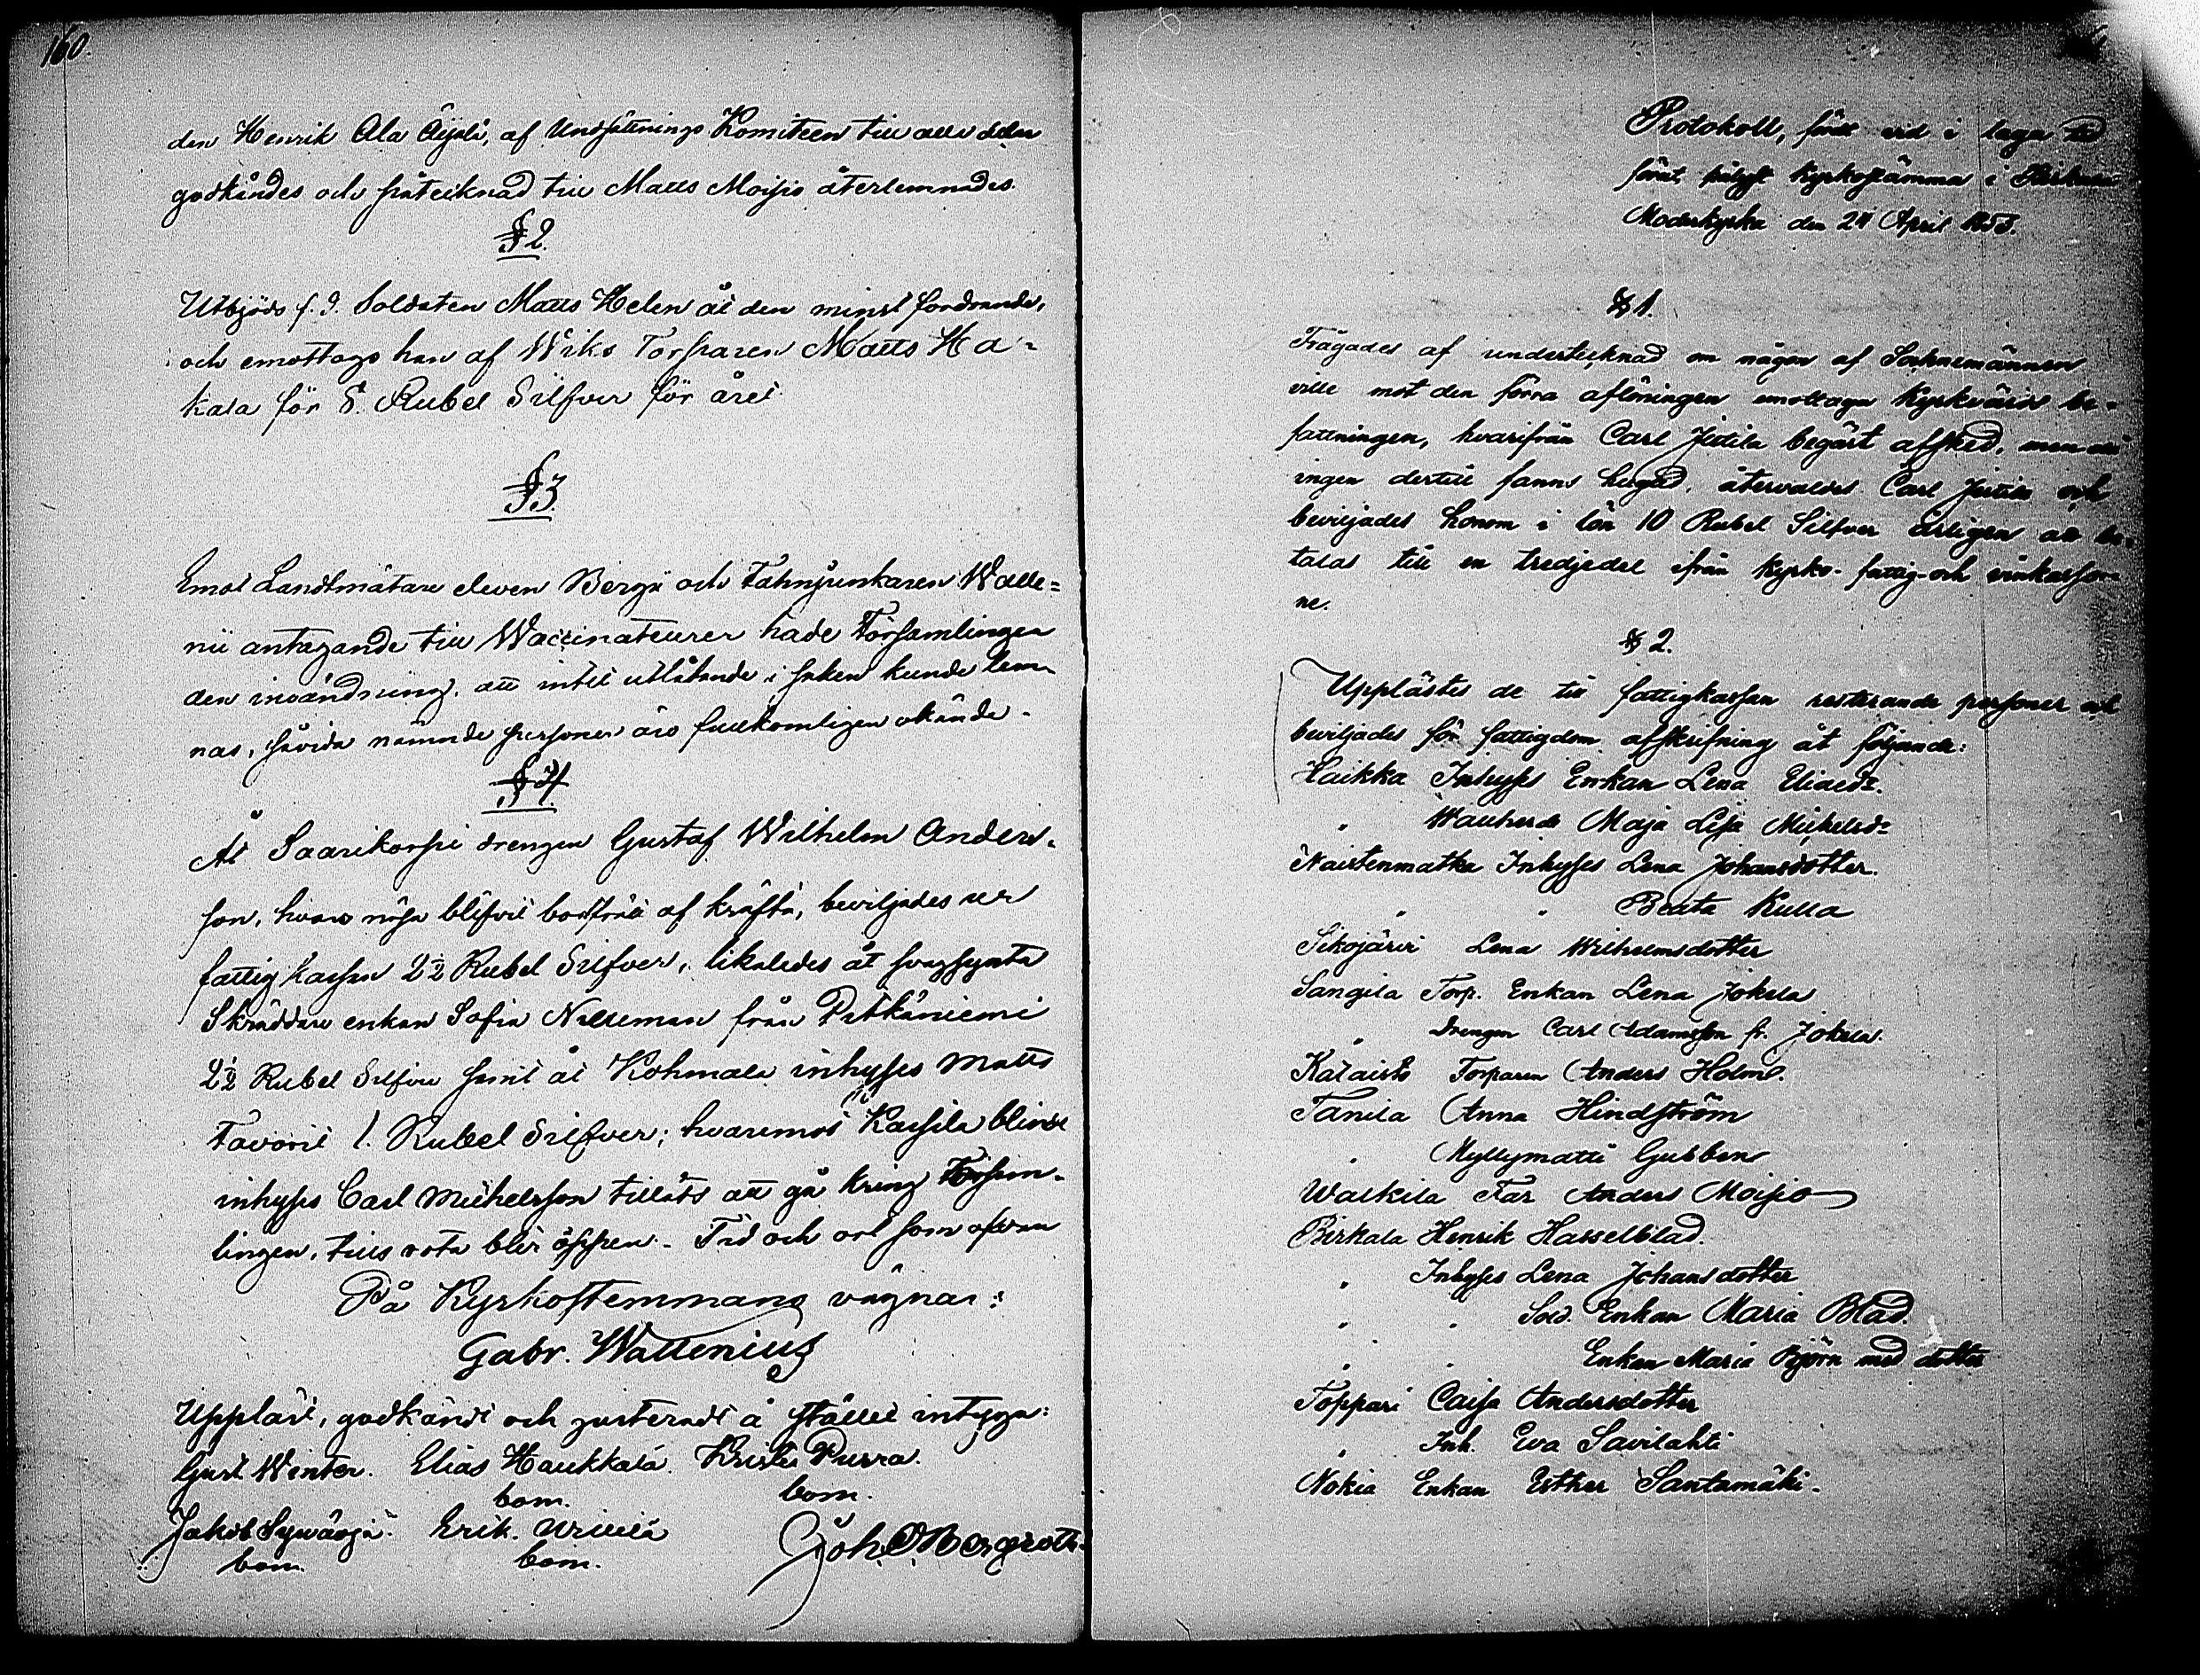 160.
den Henrik Ala Äijälä, af Undsättnings Komiteen till alla delar
godkändes och påtecknad till Matts Moisio återlemnades.
§ 2.
Utbjöds f. d. Soldaten Matts Helen åt den minst fordrande,
och emottogs han af Wiks Torparen Matts Ha-
kala för 8. Rubel Silfver för året.
§ 3.
Emot Landtmätare eleven Bergs och Fahnjunkaren Walle-
nii antagande till Waccinateurer hade Församlingen
den invändning, att intet utlåtande i saken kunde lem-
nas, såvida nämnde personer äro fullkomligen okände.
§ 4.
Åt Saarikorpi drengen Gustaf Wilhelm Anders-
son, hvars näsa blifvit bortfrätt af kräfta, beviljades ur
fattigkassan 2½ Rubel Silfver, likaledes åt svagsynta
Skräddare enkan Sofia Nalleman från Pitkäniemi
2½ Rubel Silfver samt åt Kohmala inhyses Matts
Favorit 1. Rubel Silfver; hvaremot Kassila blinde
inhyses Carl Michelsson tilläts att gå kring Försam-
lingen, tills rota blir öppen. Tid och ort som ofvan
På Kyrkostemmans vägnar:
Gabr. Wallenius
Uppläst, godkändt och justeradt å stället intyga:
Gust Winter. Elias Haukkala. Krister Purra.
bom. bom.
Jakob Sywäoja. Erik. Urilla
bom. bom.
Joh. Bergroth.
Protokoll, fördt vid i laga tid
förut pålyst Kyrkostämma i Birkala
Moderkyrka den 24 April 1853.
§ 1.
Frågades af undertecknad om någon af Socknemännen
ville mot den förra aflöningen emottaga Kyrkvärds be-
fattningen, hvarifrån Carl Jutila begärt afsked, men
ingen dertill fanns hugad, återvaldes Carl Jutila och
beviljades honom i lön 10 Rubel Silfver årligen att be-
talas till en tredjedel ifrån Kyrko- fattig- och vinkassor-
ne.
§ 2.
Upplästes de till fattigkassan resterande personer och
beviljades för fattigdom afskrifning åt följande:
Haikka Inhyses Enkan Lena Eliaedr.
" Wanherde Maja Lisa Michelsdr
Naistenmatka Inhyses Lena Johansdotter.
" " Beata Kulla
Sikojärvi Lena Wilhelmsdotter
Sangila Torp. Enkan Lena Jokela
" Drengen Carl Adamsson fr. Jokela.
Kalaisto Torparen Anders Holm.
Tanila Anna Hindström
" Myllymatti Gubben
Walkila Far Anders Moisio
Birkala Henrik Hasselblad.
" Inhyses Lena Johansdotter
" " Sold. Enkan Maria Blad.
" " Enkan Maria Björn med dotter
Toppari Caisa Andersdotter
" Inh. Eva Savilahti
Nokia Enkan Esther Santamäki.